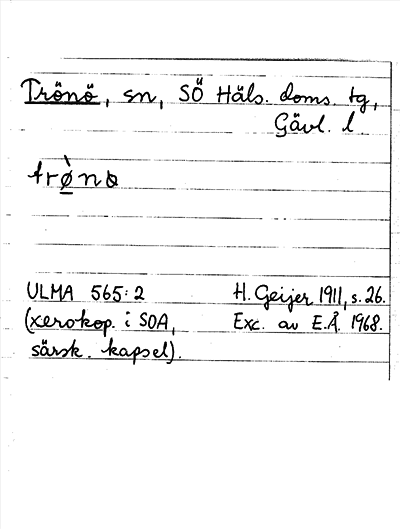 Trönö, sn, SÖ Häls. doms. tg,
Gävl. l.
trø̀na
ULMA 565:2 H. Geijer 1911, s. 26.
(xerokop. i SOA, Exc. av E.Å. 1968.
särsk. kapsel).